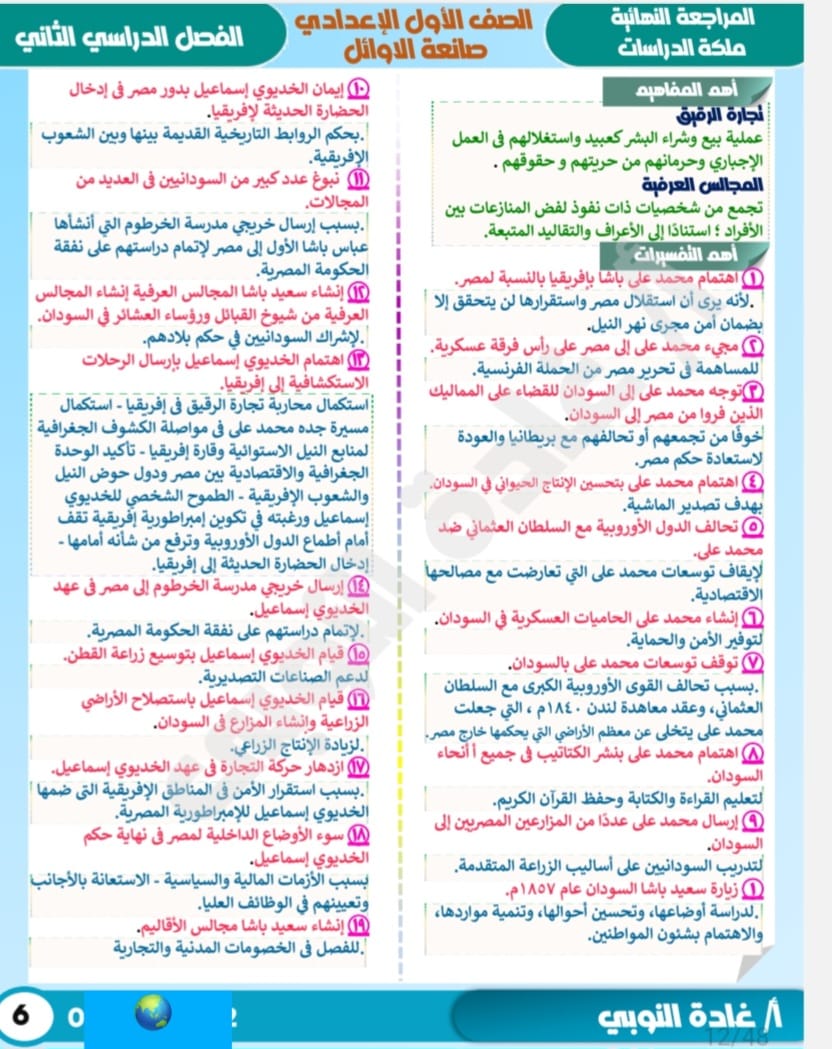 المراجعة النهائية
ملكة الدراسات
الصف الأول الإعدادي
صانعة الاوائل
الفصل الدراسي الثاني
أهم المفاهيم
تجارة الرقيق
عملية بيع وشراء البشر كعبيد واستغلالهم في العمل
الإجباري وحرمانهم من حريتهم و حقوقهم .
المجالس العرفية
تجمع من شخصيات ذات نفوذ لفض المنازعات بين
الأفراد ؛ استنادًا إلى الأعراف والتقاليد المتبعة.
أهم التفسيرات
١ اهتمام محمد على باشا بإفريقيا بالنسبة لمصر.
.لأنه يرى أن استقلال مصر واستقرارها لن يتحقق إلا
بضمان أمن مجرى نهر النيل.
٢ مجيء محمد على إلى مصر على رأس فرقة عسكرية.
للمساهمة فى تحرير مصر من الحملة الفرنسية.
٣ توجه محمد على إلى السودان للقضاء على المماليك
الذين فروا من مصر إلى السودان.
خوفًا من تجمعهم أو تحالفهم مع بريطانيا والعودة
لاستعادة حكم مصر.
٤ اهتمام محمد على بتحسين الإنتاج الحيواني في السودان.
بهدف تصدير الماشية.
٥ تحالف الدول الأوروبية مع السلطان العثماني ضد
محمد على.
لإيقاف توسعات محمد على التي تعارضت مع مصالحها
الاقتصادية.
٦ إنشاء محمد على الحاميات العسكرية في السودان.
لتوفير الأمن والحماية.
٧ توقف توسعات محمد على بالسودان.
.بسبب تحالف القوى الأوروبية الكبرى مع السلطان
العثماني، وعقد معاهدة لندن ١٨٤٠م ، التي جعلت
محمد على يتخلى عن معظم الأراضي التي يحكمها خارج مصر.
٨ اهتمام محمد على بنشر الكتاتيب فى جميع أ أنحاء
السودان.
لتعليم القراءة والكتابة وحفظ القرآن الكريم.
٩ إرسال محمد على عددًا من المزارعين المصريين إلى
السودان.
لتدريب السودانيين على أساليب الزراعة المتقدمة.
١ زيارة سعيد باشا السودان عام ١٨٥٧م.
.لدراسة أوضاعها، وتحسين أحوالها، وتنمية مواردها،
والاهتمام بشئون المواطنين.
١٠ إيمان الخديوي إسماعيل بدور مصر فى إدخال
الحضارة الحديثة لإفريقيا.
.بحكم الروابط التاريخية القديمة بينها وبين الشعوب
الإفريقية.
١١ نبوغ عدد كبير من السودانيين فى العديد من
المجالات.
.بسبب إرسال خريجي مدرسة الخرطوم التي أنشأها
عباس باشا الأول إلى مصر لإتمام دراستهم على نفقة
الحكومة المصرية.
١٢ إنشاء سعيد باشا المجالس العرفية إنشاء المجالس
العرفية من شيوخ القبائل ورؤساء العشائر في السودان.
.لإشراك السودانيين في حكم بلادهم.
١٣ اهتمام الخديوي إسماعيل بإرسال الرحلات
الاستكشافية إلى إفريقيا.
استكمال محاربة تجارة الرقيق فى إفريقيا - استكمال
مسيرة جده محمد على فى مواصلة الكشوف الجغرافية
لمنابع النيل الاستوائية وقارة إفريقيا - تأكيد الوحدة
الجغرافية والاقتصادية بين مصر ودول حوض النيل
والشعوب الإفريقية - الطموح الشخصي للخديوي
إسماعيل ورغبته في تكوين إمبراطورية إفريقية تقف
أمام أطماع الدول الأوروبية وترفع من شأنه أمامها -
إدخال الحضارة الحديثة إلى إفريقيا.
١٤ إرسال خريجي مدرسة الخرطوم إلى مصر فى عهد
الخديوي إسماعيل.
.لإتمام دراستهم على نفقة الحكومة المصرية.
١٥ قيام الخديوي إسماعيل بتوسيع زراعة القطن.
لدعم الصناعات التصديرية.
١٦ قيام الخديوي إسماعيل باستصلاح الأراضي
الزراعية وإنشاء المزارع فى السودان.
.لزيادة الإنتاج الزراعي.
١٧ ازدهار حركة التجارة فى عهد الخديوي إسماعيل.
.بسبب استقرار الأمن فى المناطق الإفريقية التى ضمها
الخديوي إسماعيل للإمبراطورية المصرية.
١٨ سوء الأوضاع الداخلية لمصر فى نهاية حكم
الخديوي إسماعيل.
بسبب الأزمات المالية والسياسية - الاستعانة بالأجانب
وتعيينهم في الوظائف العليا.
١٩ إنشاء سعيد باشا مجالس الأقاليم.
.للفصل فى الخصومات المدنية والتجارية
أ/ غادة النوبي
12/48
6